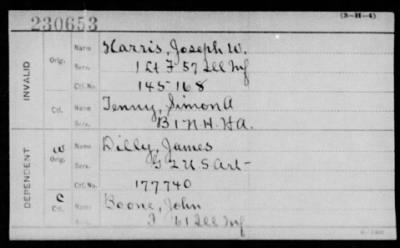 230653
(3-H-4)
INVALID
Orig.
Name Harris, Joseph W.
Serv. 1 Lt F 57 Ill Inf
Ctf. No. 145168
Ctf.
Name Tenny, Simon A
Serv. B 1 N.H. H A.
DEPENDENT
W
Orig.
Name Dilly, James
Serv. G 2 U S Art-
Ctf. No. 177740
C
Ctf.
Name Boone, John
Serv. 61 Ill Inf